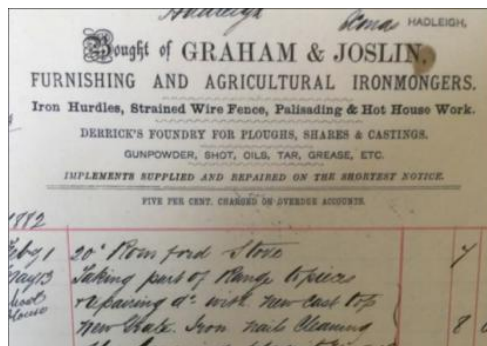 Hadleigh HADLEIGH,
Bought of GRAHAM & JOSLIN,
FURNISHING AND AGRICULTURAL IRONMONGERS.
Iron Hurdles, Strained Wire Fence, Palisading & Hot House Work.
DERRICK'S FOUNDRY FOR PLOUGHS, SHARES & CASTINGS.
GUNPOWDER, SHOT, OILS, TAR, GREASE, ETC.
IMPLEMENTS SUPPLIED AND REPAIRED ON THE SHORTEST NOTICE.
FIVE PER CENT. CHARGED ON OVERDUE ACCOUNTS.
1882
Feby 1 20" Romford Stove 7
May 13 Taking part of Range to pieces
repairing do with new cast top
House new Grate Iron nails Cleaning 8